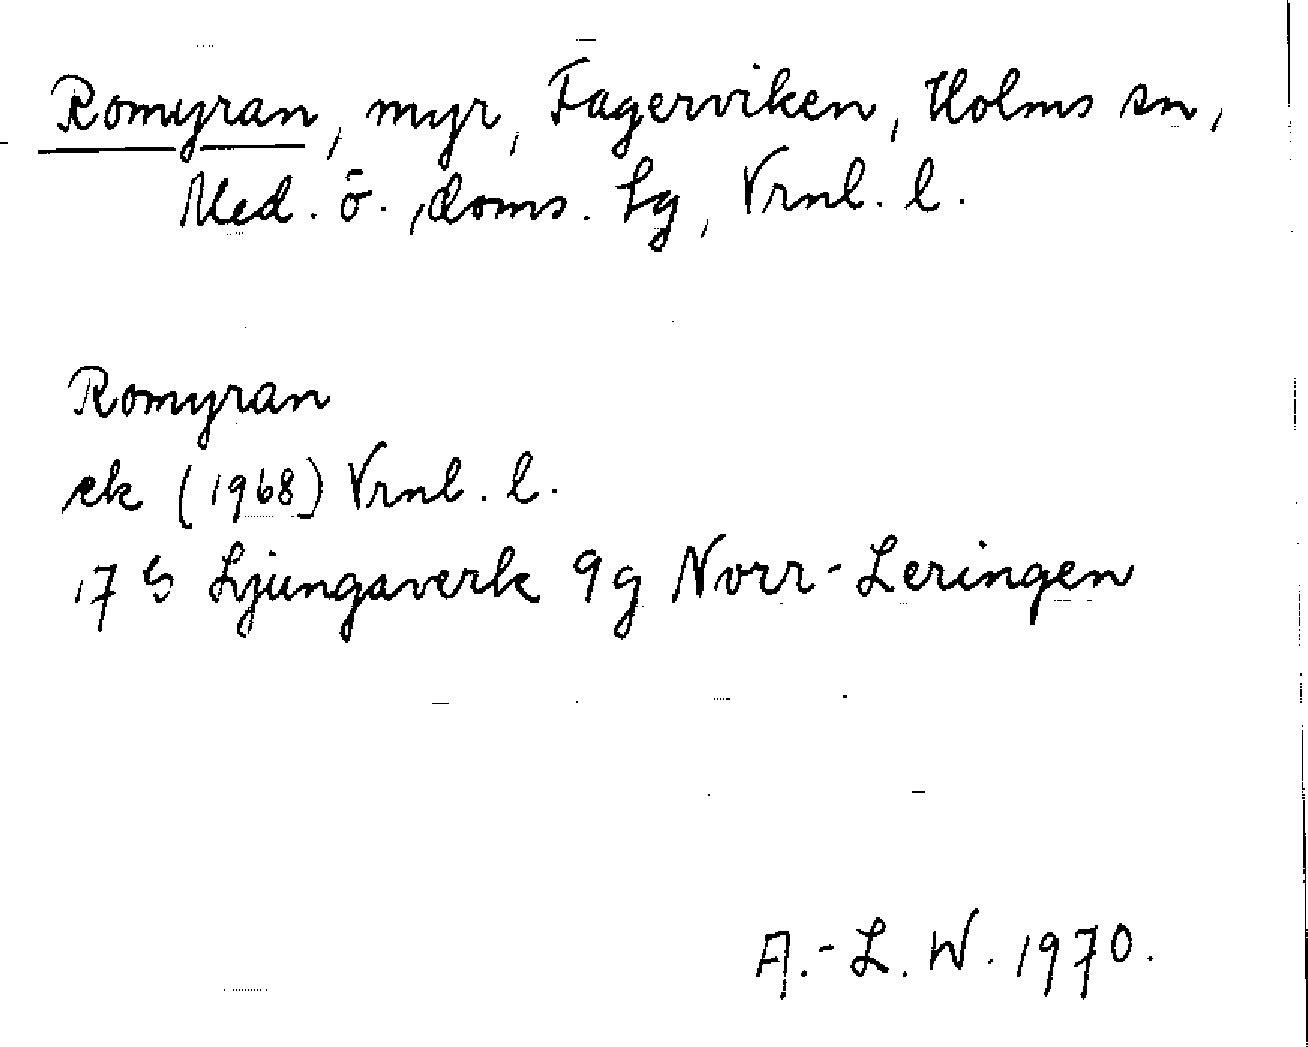 Romyran, myr, Fagerviken, Holms sn,
Med. ö. doms. Lg, Vrnl. l.
Romyran
ek (1968) Vrnl. l.
17 G Ljungaverk 9g Norr-Leringen
A.-L. W. 1970.